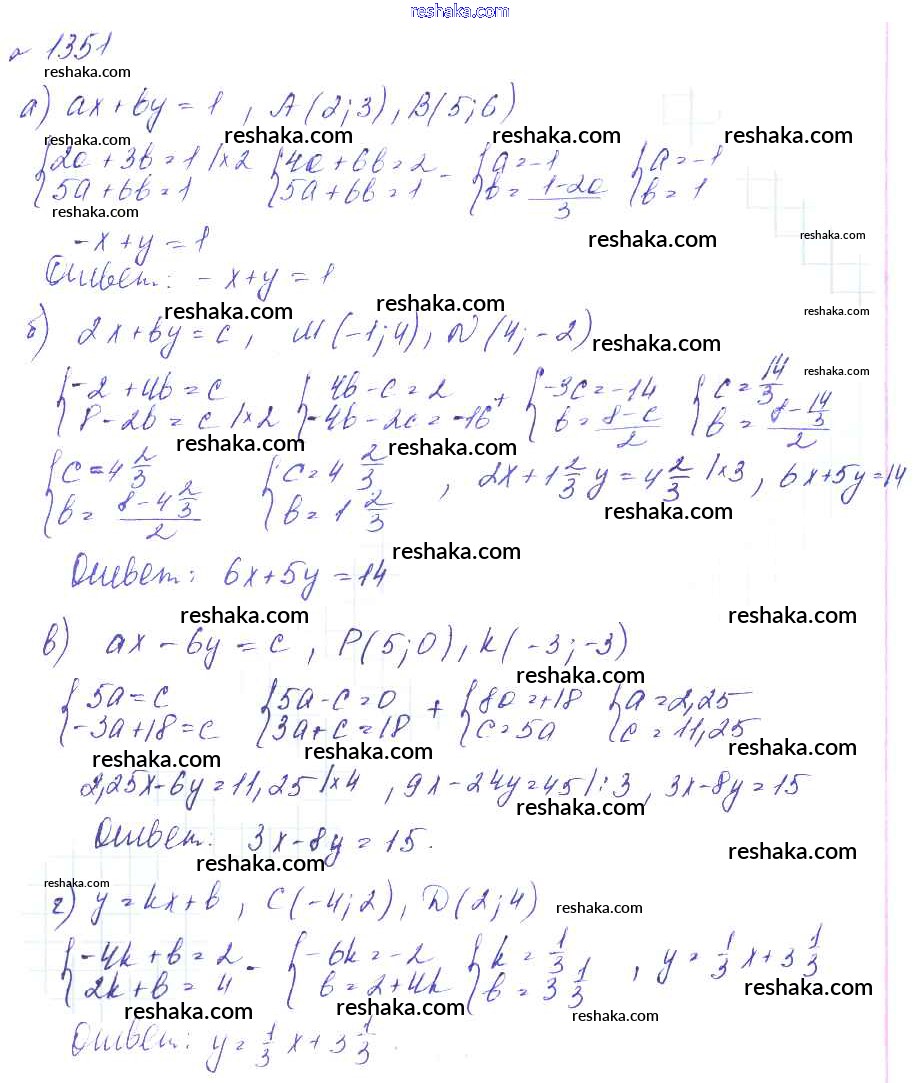 reshaka.com
№ 1351
reshaka.com
а) ax + by = 1 , A(2;3), B(5;6)
reshaka.com reshaka.com reshaka.com reshaka.com
{2a + 3b = 1 |×2 {4a + 6b = 2 - {a = -1 {a = -1
{5a + 6b = 1 {5a + 6b = 1 {b = (1-2a)/3 {b = 1
reshaka.com
-x + y = 1 reshaka.com reshaka.com
Ответ: -x + y = 1
reshaka.com reshaka.com reshaka.com
б) 2x + by = c, M(-1;4), N(4;-2)
reshaka.com
reshaka.com
{-2 + 4b = c {4b - c = 2 + {-3c = -14 {c = 14/3
{8 - 2b = c |×2 {-4b - 2c = -16 {b = (8-c)/2 {b = (8 - 14/3)/2
reshaka.com reshaka.com
{c = 4 2/3 {c = 4 2/3 , 2x + 1 2/3 y = 4 2/3 |×3 , 6x + 5y = 14
{b = (8 - 4 2/3)/2 {b = 1 2/3
reshaka.com
reshaka.com
Ответ: 6x + 5y = 14
reshaka.com reshaka.com
в) ax - 6y = c , P(5;0), K(-3;-3)
reshaka.com
{5a = c {5a - c = 0 + {8a = +18 {a = 2,25
{-3a + 18 = c {3a + c = 18 {c = 5a {c = 11,25
reshaka.com reshaka.com reshaka.com
2,25x - 6y = 11,25 |×4 , 9x - 24y = 45 |:3 , 3x - 8y = 15
reshaka.com
Ответ: 3x - 8y = 15.
reshaka.com reshaka.com
reshaka.com
г) y = kx + b , C(-4;2), D(2;4)
reshaka.com
{-4k + b = 2 - {-6k = -2 {k = 1/3 , y = 1/3 x + 3 1/3
{2k + b = 4 {b = 2 + 4k {b = 3 1/3
reshaka.com
reshaka.com reshaka.com reshaka.com
Ответ: y = 1/3 x + 3 1/3.